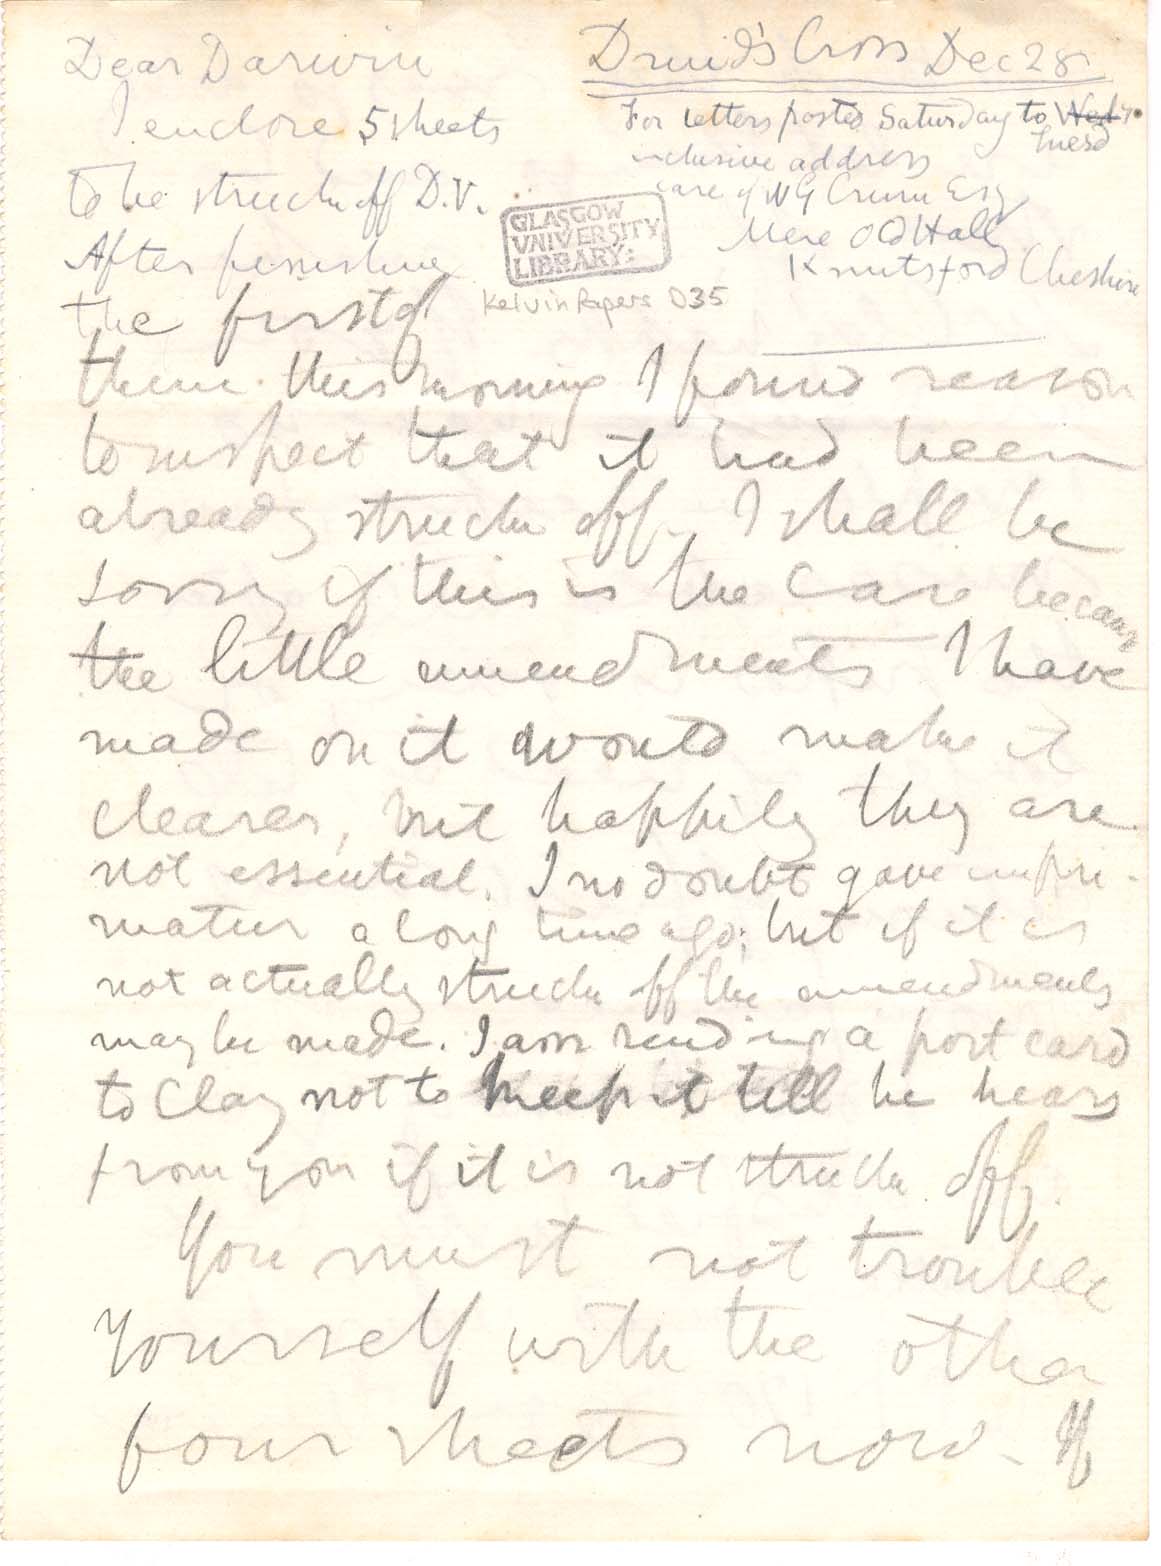 Druid's Cross Dec 28
For letters posted Saturday to Wedy.
Tuesd
inclusive address
care of W G Crum Esq
Mere Old Hall
Knutsford Cheshire
Dear Darwin
I enclose 5 sheets
to be struck off D.V.
After finishing
the first of
them this morning I found reason
to suspect that it had been
already struck off. I shall be
sorry if this is the case because
the little amendments I have
made on it would make it
clearer, but happily they are
not essential. I no doubt gave impri-
matur a long time ago; but if it is
not actually struck off the amendments
may be made. I am sending a post card
to Clay not to keep it till he hears
from you if it is not struck off.
You must not trouble
yourself with the other
four sheets now. If
GLASGOW
UNIVERSITY
LIBRARY:
Kelvin Papers D35